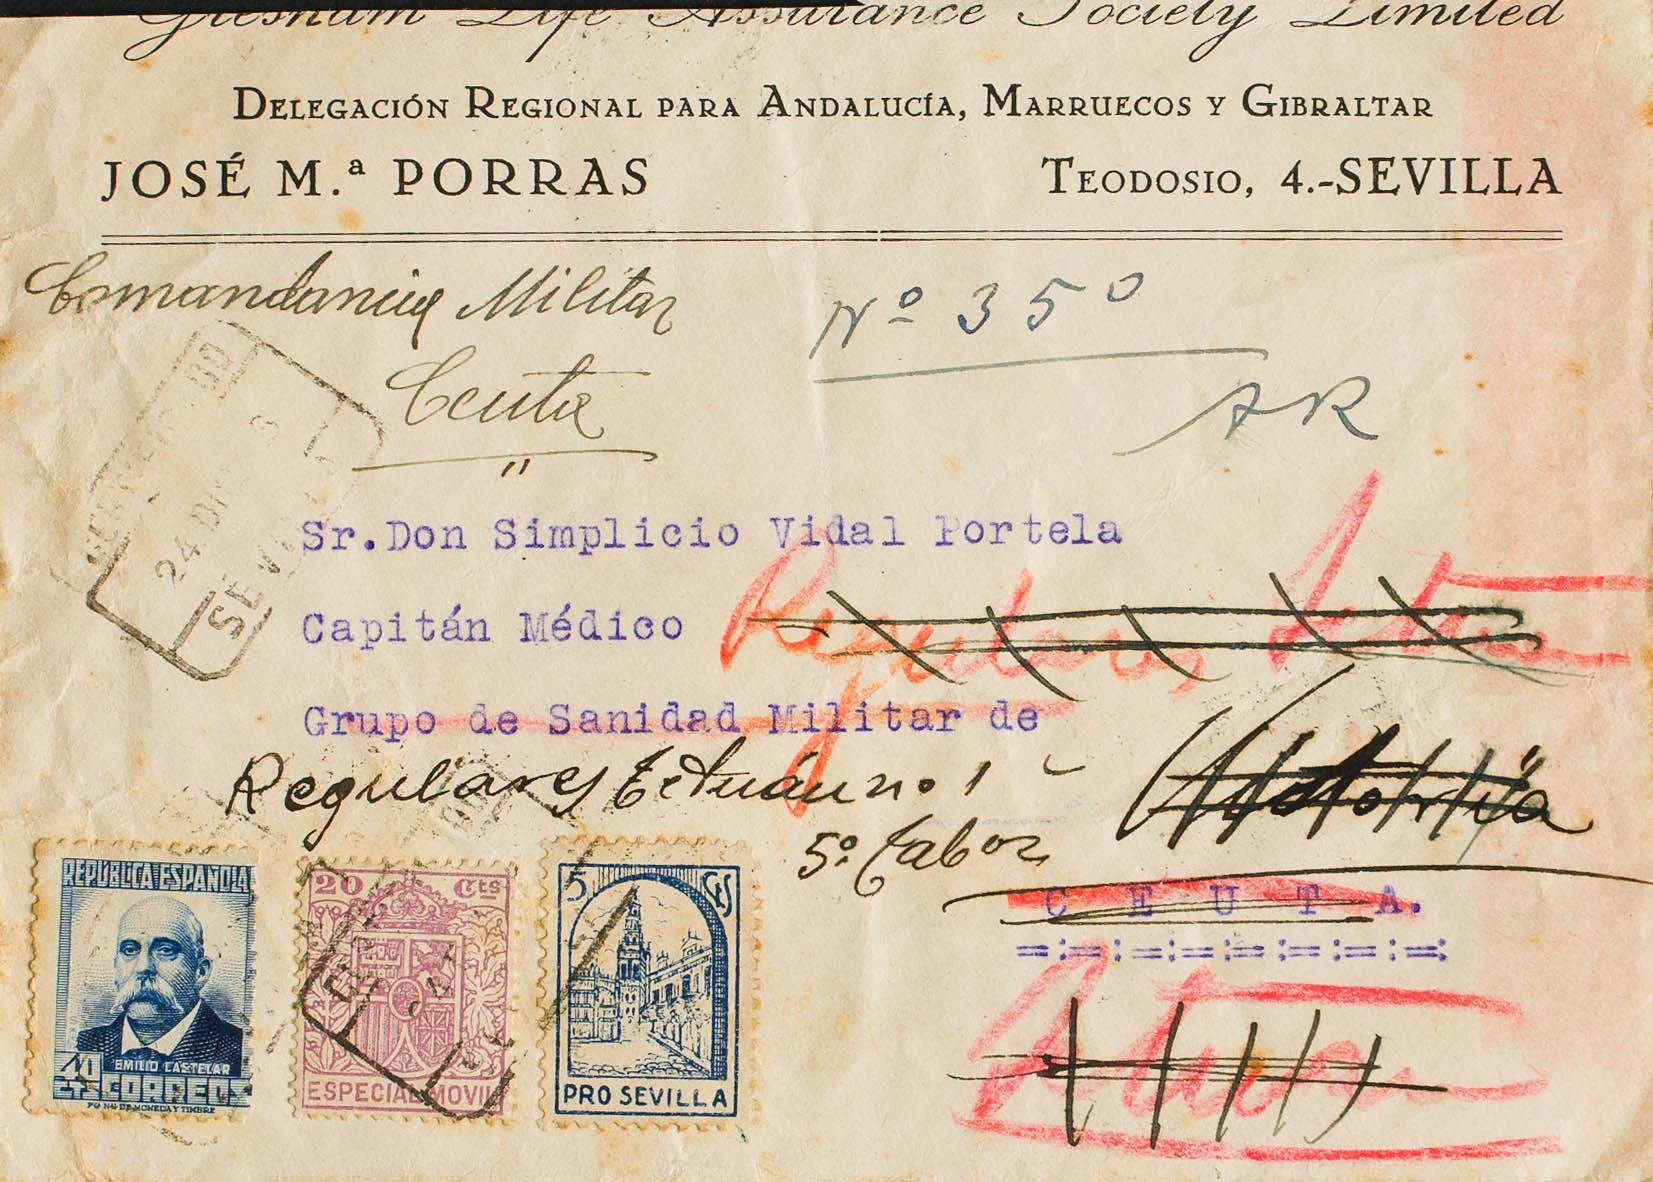 Gresham Life Assurance Society Limited
DELEGACIÓN REGIONAL PARA ANDALUCÍA, MARRUECOS Y GIBRALTAR
JOSÉ M.ª PORRAS
TEODOSIO, 4.-SEVILLA
Comandancia Militar
Nº 350
Ceuta
"
AR
24 DIC
SEVILLA
Sr. Don Simplicio Vidal Portela
Capitán Médico
Regulares
Grupo de Sanidad Militar de
Regulares Tetuán no. 1
Victoria
5º Tabor
C E U T A.
=:=:=:=:=:=:=:=:
REPÚBLICA ESPAÑOLA
40 CTS
EMILIO CASTELAR
CORREOS
20 Cts
ESPECIAL MOVIL
5 Cts
PRO SEVILLA